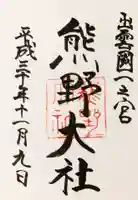 出雲國一之宮
熊野大社
平成三十年十一月九日